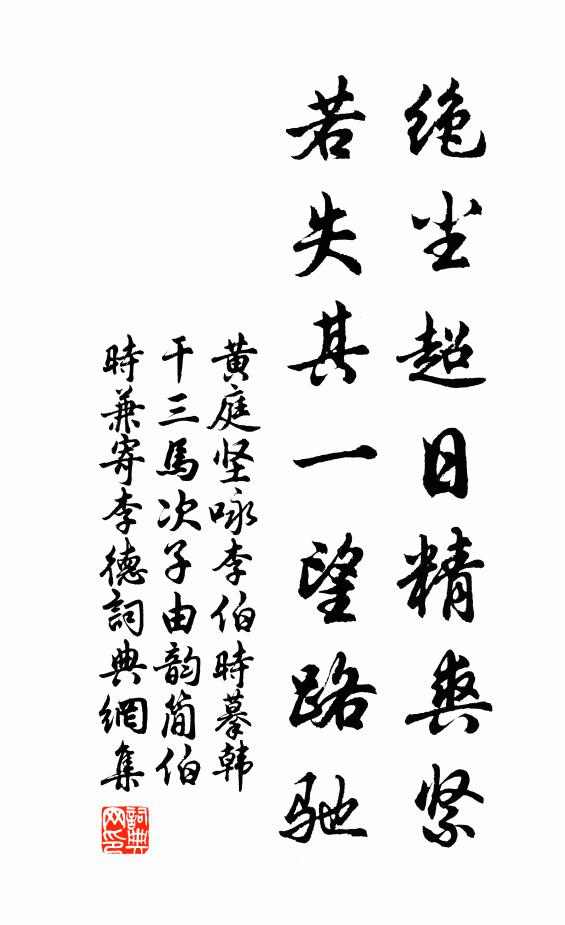 绝尘超日精爽紧
若失其一望路驰
黄庭坚咏李伯時摹韩
干三馬次子由韵简伯
時兼寄李德詞典網集
詞典
网印